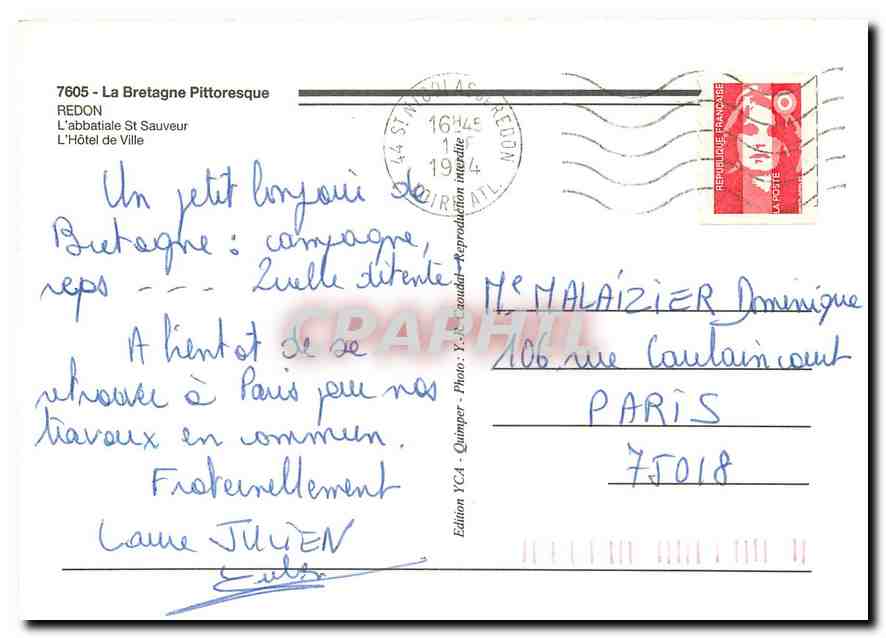 7605 - La Bretagne Pittoresque
REDON
L'abbatiale St Sauveur
L'Hôtel de Ville
44 ST NICOLAS DE REDON
16H45
1994
LOIRE ATL.
REPUBLIQUE FRANÇAISE
LA POSTE
Un petit bonjour de
Bretagne : campagne,
reps --- Quelle détente!
A bientot de se
retrouver à Paris pour nos
travaux en commun.
Fraternellement
Laure JULIEN
Edition YCA - Quimper - Photo : Y.-R. Caoudal - Reproduction interdite
CPAPHIL
Me MALAÏZIER Dominique
106, rue Caulaincourt
PARIS
75018